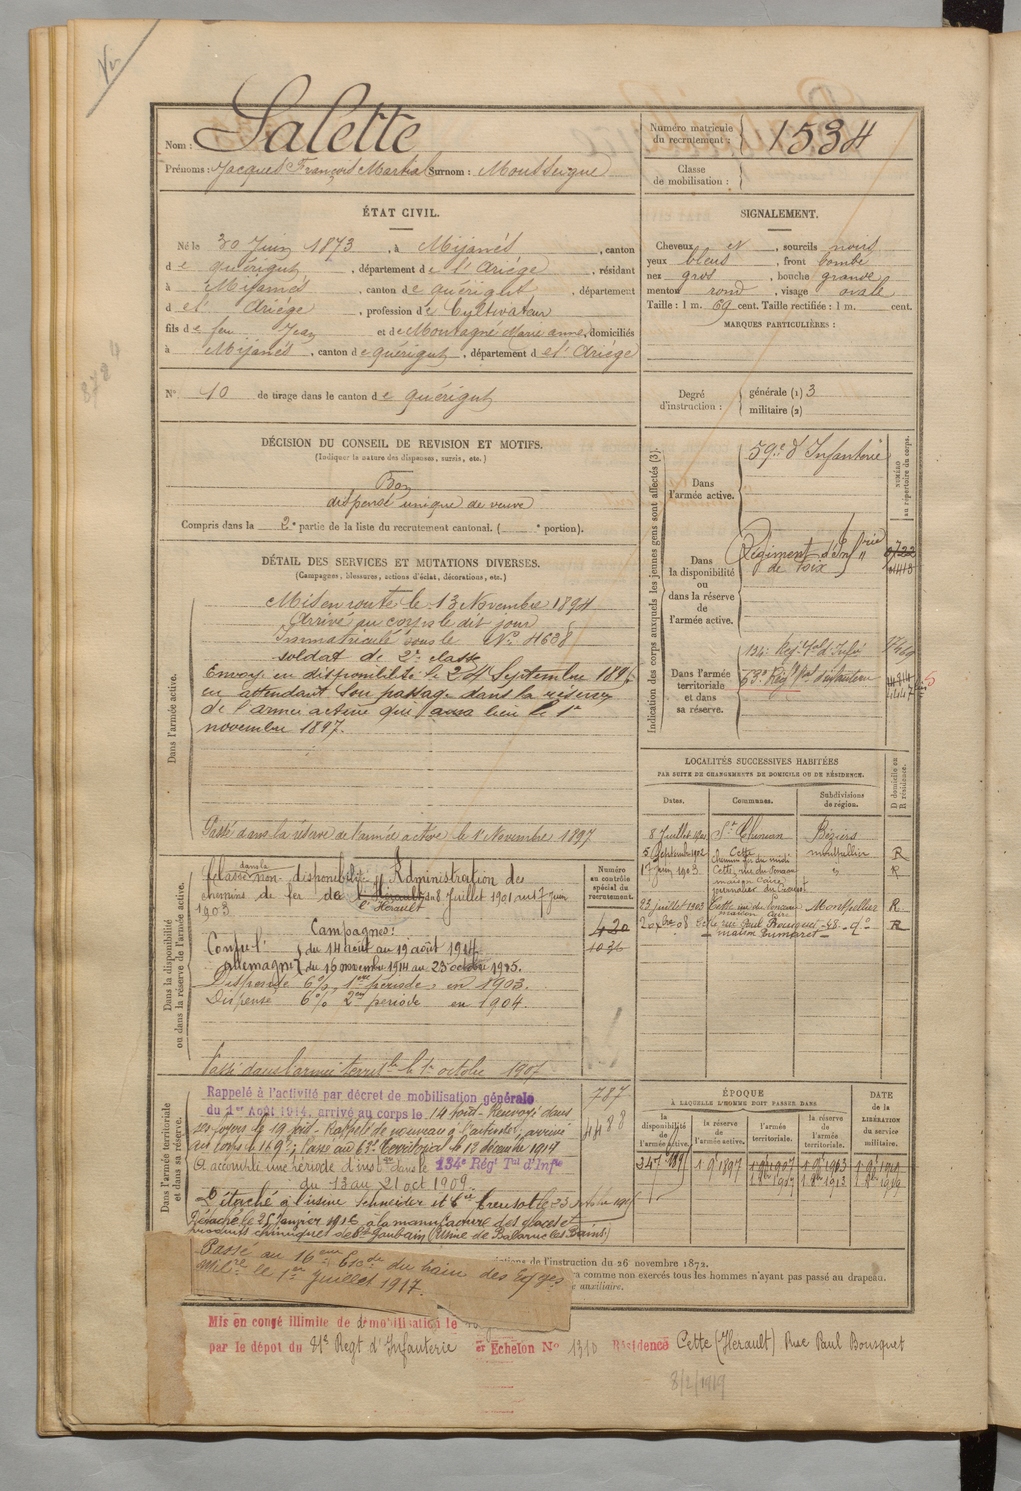 Nom : Salette
Prénoms : Jacques François Martial Surnom : Mousseigne
Numéro matricule du recrutement : 1534
Classe de mobilisation :
ÉTAT CIVIL.
Né le 30 Juin 1873, à Mijanès, canton
de quérigut, département de l'Ariége, résidant
à Mijanès, canton de quérigut, département
d el' Ariége, profession de Cultivateur
fils de feu Jean et de Montagné Marie anne, domiciliés
à Mijanès, canton de quérigut, département d el' Ariége
N° 10 de tirage dans le canton de quérigut
SIGNALEMENT.
Cheveux N, sourcils noirs
yeux bleus, front bombé
nez gros, bouche grande
menton rond, visage ovale
Taille : 1 m. 69 cent. Taille rectifiée : 1 m. cent.
MARQUES PARTICULIÈRES :
Degré d'instruction : générale (1) 3
militaire (2)
DÉCISION DU CONSEIL DE REVISION ET MOTIFS.
(Indiquer la nature des dispenses, sursis, etc.)
Bon
dispensé unique de veuve
Compris dans la 2e partie de la liste du recrutement cantonal. ( e portion).
DÉTAIL DES SERVICES ET MUTATIONS DIVERSES.
(Campagnes, blessures, actions d'éclat, décorations, etc.)
Dans l'armée active.
Mis en route le 13 Novembre 1894
Arrivé au corps le dit jour
Immatriculé sous le N° 4638
soldat de 2e classe
Envoyé en disponibilité le 24 Septembre 1895
en attendant son passage dans la réserve
de l'armée active qui aura lieu le 1er
novembre 1897.
Passé dans la réserve de l'armée active le 1er Novembre 1897
Indication des corps auxquels les jeunes gens sont affectés (3).
NUMÉRO au répertoire du corps.
Dans l'armée active.
59e d'Infanterie
Dans la disponibilité ou dans la réserve de l'armée active.
Régiment d'Infrie
de Foix
0722
Dans l'armée territoriale et dans sa réserve.
134e Régt Tal d'Infie
63e Régt Tal d'infanterie
LOCALITÉS SUCCESSIVES HABITÉES
PAR SUITE DE CHANGEMENTS DE DOMICILE OU DE RÉSIDENCE.
Dates. Communes. Subdivisions de région. D domicile ou R résidence.
8 Juillet 1901 St Chinian Béziers
5 Septembre 1902 Cette chemin fer du midi montpellier R
17 juin 1903 Cette, rue du Souras maison Caire journalier du Creusot " R
23 juillet 1903 Cette rue du Souras maison Caire Montpellier R
20 Xbre 08 Cette, rue Paul Bousquet - 48 - do R
Dans la disponibilité ou dans la réserve de l'armée active.
Classé dans la non disponibilité " Administration des
chemins de fer de l'Hérault du 8 Juillet 1901 au 17 juin
1903 l'Hérault
Campagnes :
Contre l' du 14 août au 19 août 1914
allemagne du 16 novembre 1914 au 23 octobre 1915.
Dispensé 6%, 1ère période, en 1903.
Dispensé 6% 2ème période en 1904.
Passé dans l'armée territle le 1er octobre 1907
Numéro au contrôle spécial du recrutement.
420
1036
Dans l'armée territoriale et dans sa réserve.
Rappelé à l'activité par décret de mobilisation générale
du 1er Août 1914, arrivé au corps le 14 août - Renvoyé dans
ses foyers le 19 août - Rappelé de nouveau à l'activité, arrivé
au corps le 16 9bre, Passé au 63e Territorial le 12 décembre 1914
A accompli une période d'inston dans le 134e Régt Tal d'Infie
du 13 au 21 oct 1909.
Détaché à l'usine Schneider et Cie Creusot le 23 octobre 1915
Détaché le 25 Janvier 1916 à la manufacture des glaces et
produits chimiques de St Gaubain (Usine de Balaruc les Bains)
Passé au 16eme Eson du train des Eqges
Milre le 1er Juillet 1917.
787
4488
ÉPOQUE
À LAQUELLE L'HOMME DOIT PASSER DANS
la disponibilité de l'armée active. la réserve de l'armée active. l'armée territoriale. la réserve de l'armée territoriale.
DATE de la LIBÉRATION du service militaire.
1 9bre 1897 1 8bre 1907 1 8bre 1913 1 8bre 1919
instruction du 26 novembre 1872.
a comme non exercés tous les hommes n'ayant pas passé au drapeau.
auxiliaire.
Mis en congé illimité de démobilisation le
par le dépot du 81e Regt d'Infanterie er Echelon No 1310 Résidence Cette (Hérault) Rue Paul Bousquet
8/2/1919